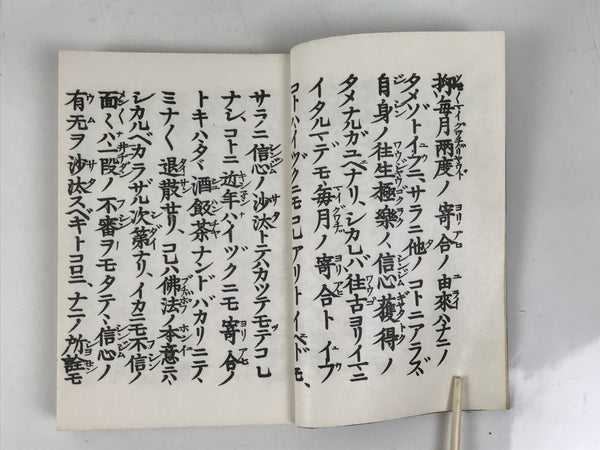 抑毎月兩度ノ寄合ノ由來ハナニノ
タメゾトイフニ、サラニ他ノコトニアラズ、
自身ノ往生極樂ノ、信心獲得ノ
タメナルガユヘナリ、シカレバ往古ヨリイマニ
イタルマデモ毎月ノ寄合トイフ
コトハイヅクニモコレアリトイヘドモ、
サラニ信心ノ沙汰トテハカツテモテコレ
ナシ、コトニ近年ハイヅクニモ寄合ノ
トキハタヾ酒飯茶ナンドバカリニテ、
ミナ〱退散セリ、コレハ佛法ノ本意ニハ
シカルベカラザル次第ナリ、イカニモ不信ノ
面〱ハ一段ノ不審ヲモタテヽ、信心ノ
有无ヲ沙汰スベキトコロニ、ナニノ所詮モ